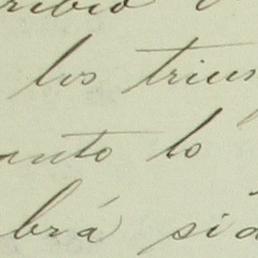 ribió
los trius
anto lo
brá sid